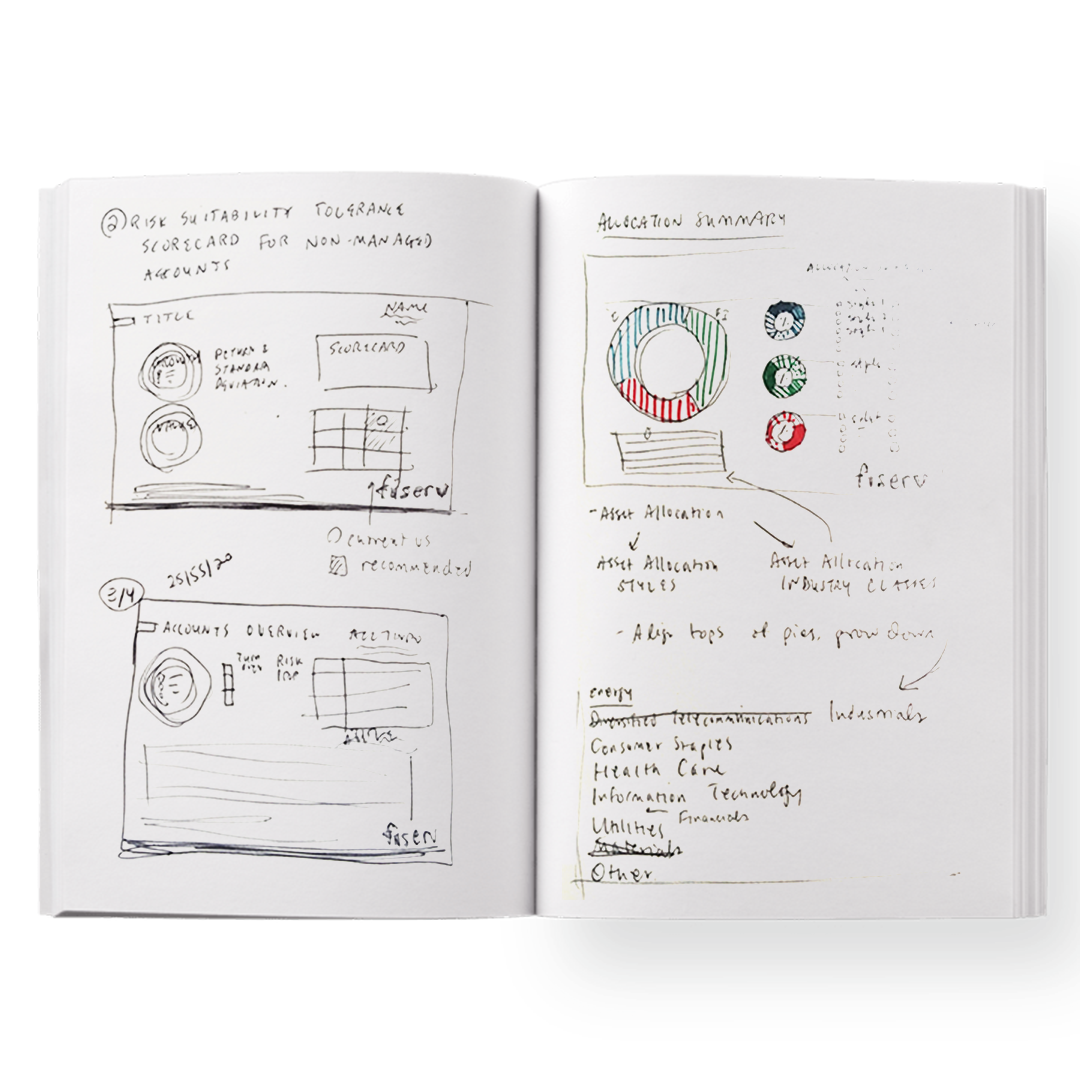 ② RISK SUITABILITY TOLERANCE
SCORECARD FOR NON-MANAGED
ACCOUNTS
TITLE
NAME
RETURN &
STANDARD
DEVIATION.
SCORECARD
fiserv
current us
recommended
25/55/20
3/4
ACCOUNTS OVERVIEW
RISK
fiserv
ALLOCATION SUMMARY
C
FI
style 1
style 2
style
fiserv
- Asset Allocation
Asset Allocation
STYLES
Asset Allocation
INDUSTRY CLASSES
- Align tops of pies, grow down
energy
Diversified Telecommunications Industrials
Consumer Staples
Health Care
Information Technology
Utilities Financials
Materials
Other